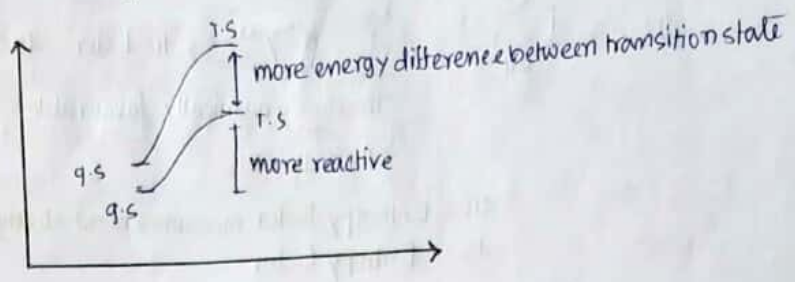 T.S
more energy difference between transition state
T.S
more reactive
g.s
g.s